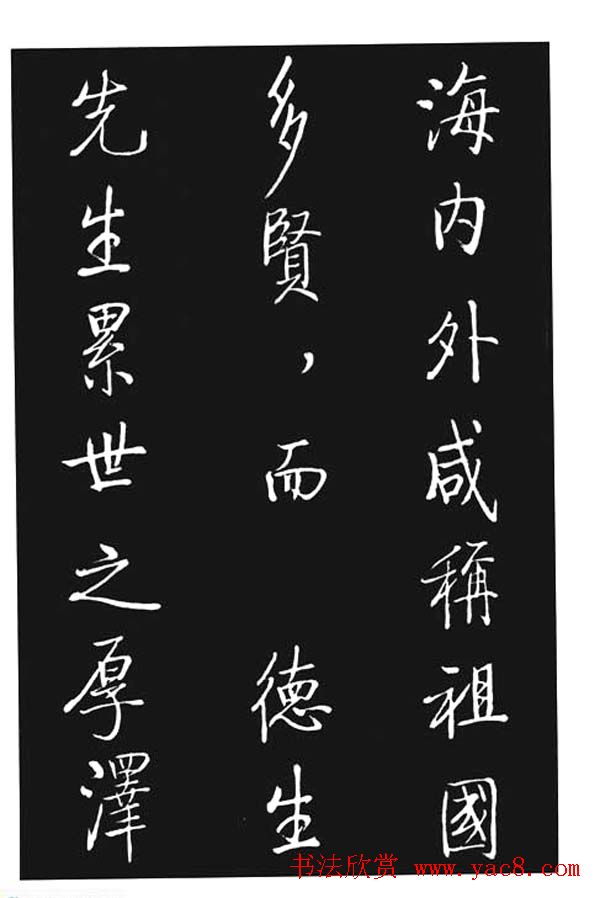 海内外咸稱祖國
多賢，而 德生
先生累世之厚澤
书法欣赏 www.yac8.com